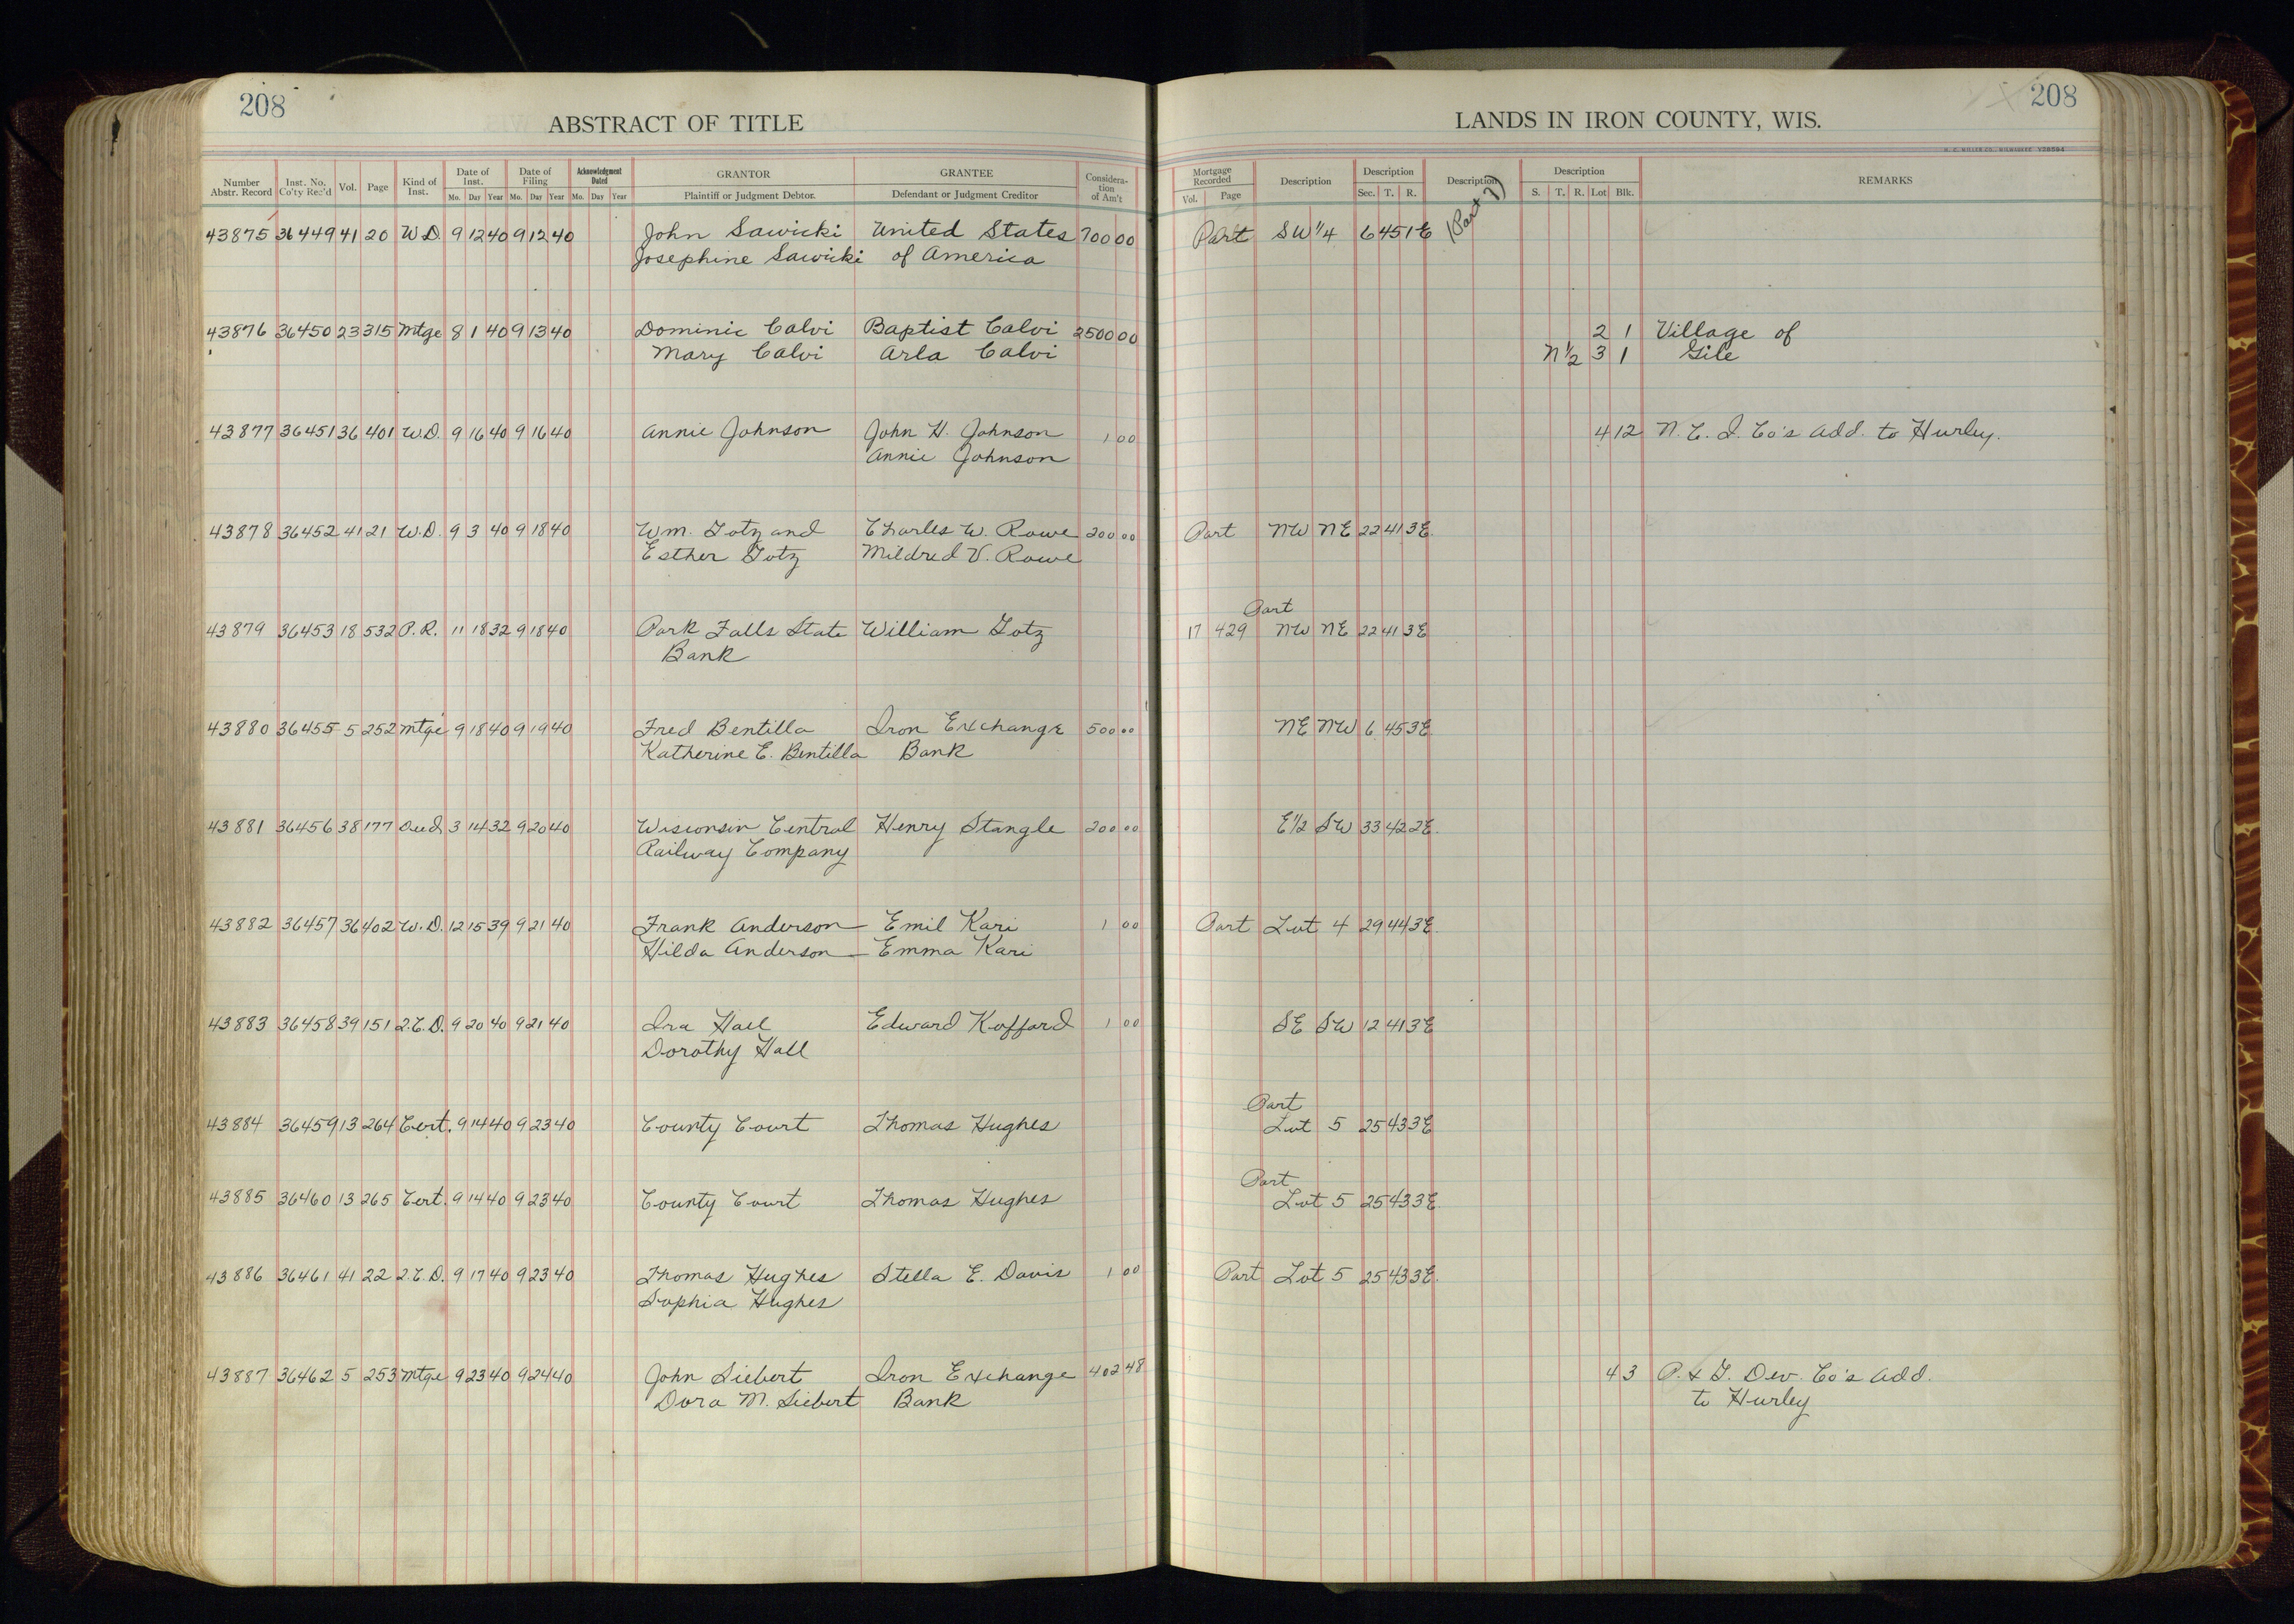 208
ABSTRACT OF TITLE
LANDS IN IRON COUNTY, WIS.
208
H. C. MILLER CO., MILWAUKEE
Number Abstr. Record | Inst. No. Co'ty Rec'd | Vol. | Page | Kind of Inst. | Date of Inst. Mo. Day Year | Date of Filing Mo. Day Year | Acknowledgment Dated Mo. Day Year | GRANTOR Plaintiff or Judgment Debtor. | GRANTEE Defendant or Judgment Creditor | Consideration of Am't | Mortgage Recorded Vol. Page | Description | Description Sec. T. R. | Description | Description S. T. R. Lot Blk. | REMARKS
43875 36449 41 20 W.D. 9 12 40 9 12 40 John Sawicki United States 700 00 Part SW 1/4 6 45 1E (Part ?)
Josephine Sawicki of America
43876 36450 23 315 Mtge 8 1 40 9 13 40 Dominic Calvi Baptist Calvi 2500 00 2 1 Village of
Mary Calvi Arla Calvi N 1/2 3 1 Gile
43877 36451 36 401 W.D. 9 16 40 9 16 40 Annie Johnson John H. Johnson 1 00 4 12 N. C. I. Co's Add. to Hurley.
Annie Johnson
43878 36452 41 21 W.D. 9 3 40 9 18 40 Wm. Gotz and Charles W. Rowe 200 00 Part NW NE 22 41 3E
Esther Gotz Mildred V. Rowe
Part
43879 36453 18 532 P.R. 11 18 32 9 18 40 Park Falls State William Gotz 17 429 NW NE 22 41 3E
Bank
43880 36455 5 252 Mtge 9 18 40 9 19 40 Fred Bentilla Iron Exchange 500 00 NE NW 6 45 3E
Katherine E. Bentilla Bank
43881 36456 38 177 Deed 3 14 32 9 20 40 Wisconsin Central Henry Stangle 200 00 E 1/2 SW 33 42 2E.
Railway Company
43882 36457 36 402 W.D. 12 15 39 9 21 40 Frank Anderson Emil Kari 1 00 Part Lot 4 29 44 3E.
Hilda Anderson Emma Kari
43883 36458 39 151 Q.C.D. 9 20 40 9 21 40 Ira Hall Edward Kofford 1 00 SE SW 12 41 3E
Dorothy Hall
Part
43884 36459 13 264 Cert. 9 14 40 9 23 40 County Court Thomas Hughes Lot 5 25 43 3E
Part
43885 36460 13 265 Cert. 9 14 40 9 23 40 County Court Thomas Hughes Lot 5 25 43 3E
43886 36461 41 22 Q.C.D. 9 17 40 9 23 40 Thomas Hughes Stella E. Davis 1 00 Part Lot 5 25 43 3E.
Sophia Hughes
43887 36462 5 253 Mtge 9 23 40 9 24 40 John Siebert Iron Exchange 402 48 4 3 P. & G. Dev. Co's Add.
Dora M. Siebert Bank to Hurley